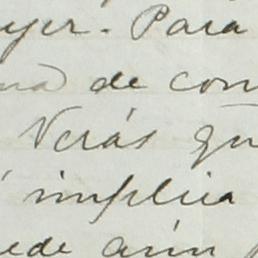 ayer. Para
una de con
Verás qu
implica
ede aún